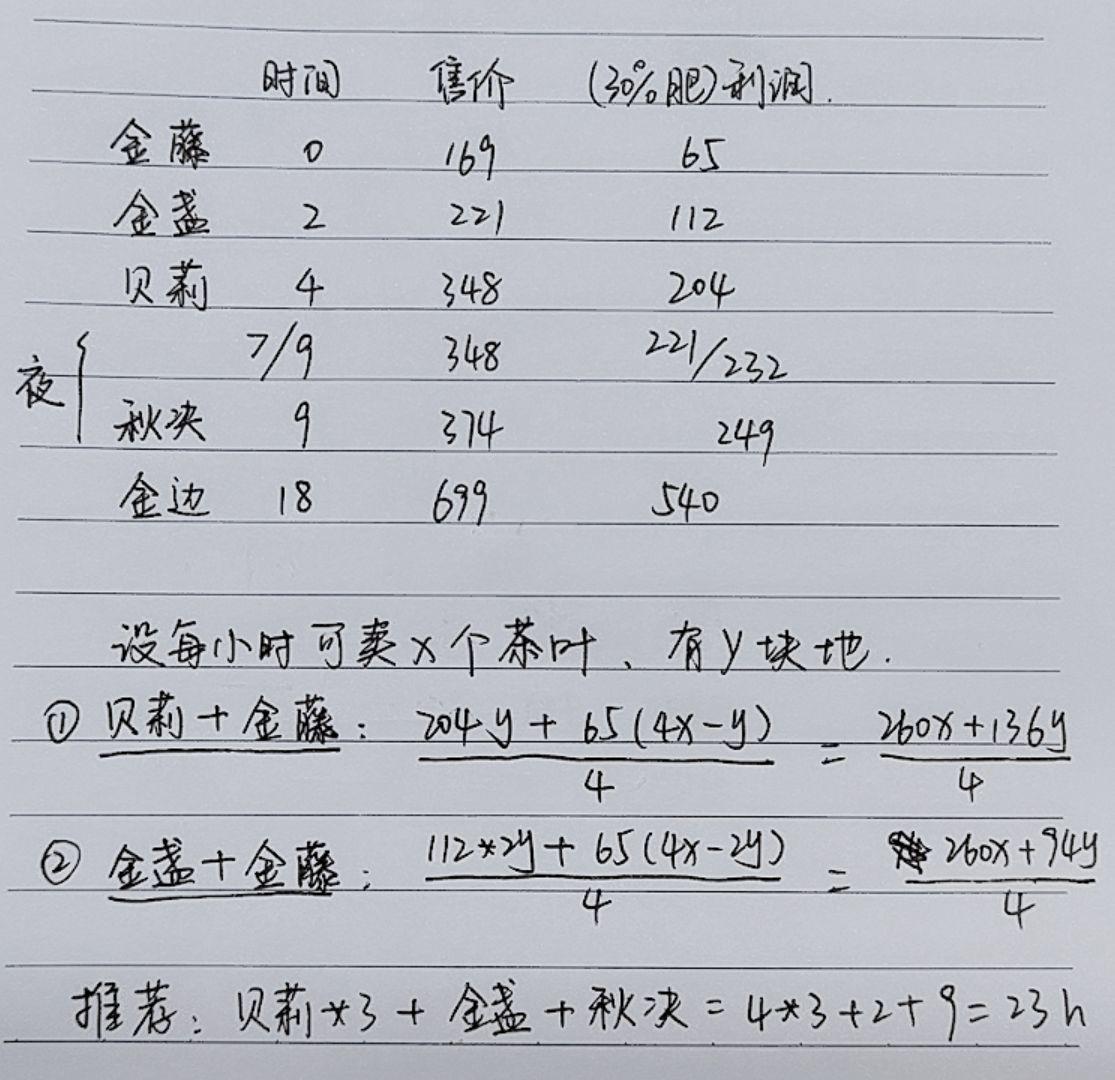 时间 售价 (30%肥)利润.
金藤 0 169 65
金盏 2 221 112
贝莉 4 348 204
7/9 348 221/232
夜
秋决 9 374 249
金边 18 699 540
设每小时可卖x个茶叶、有y块地.
① 贝莉+金藤: 204y+65(4x-y)/4 = 260x+136y/4
② 金盏+金藤: 112*2y+65(4x-2y)/4 = 260x+94y/4
推荐: 贝莉*3+金盏+秋决=4*3+2+9=23h